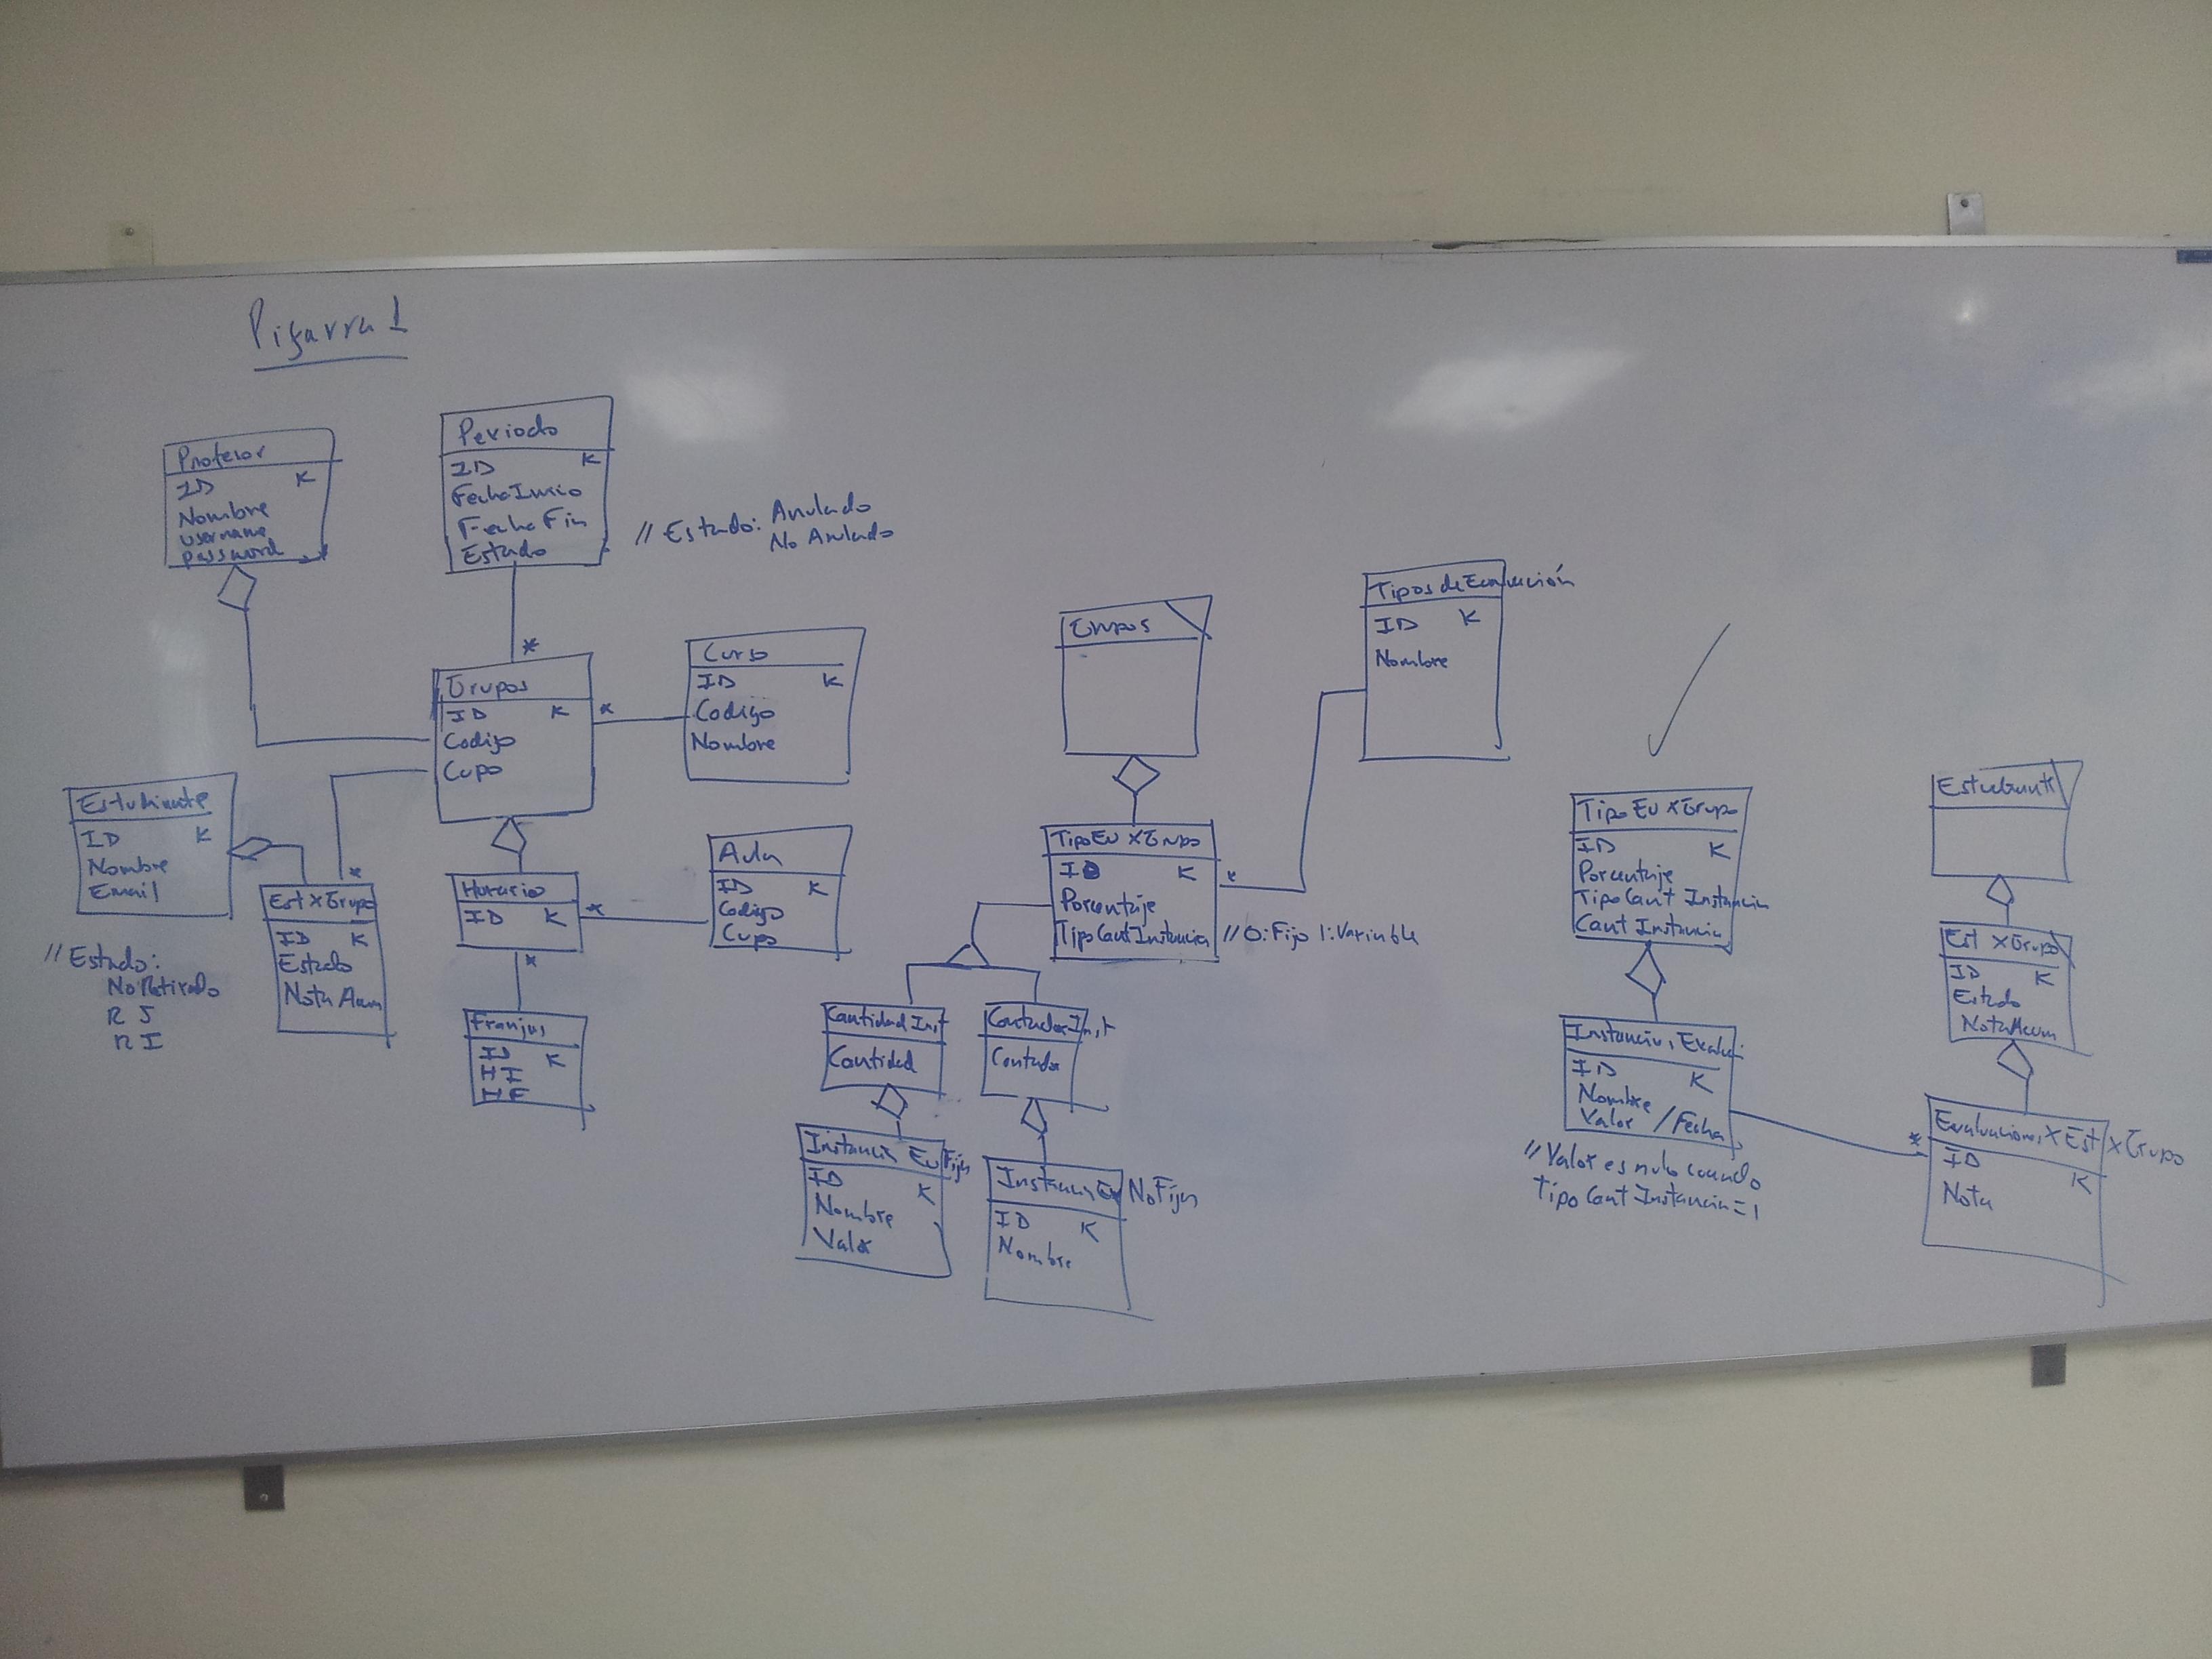 Pizarra 1
Profesor
ID K
Nombre
username
password
Periodo
ID K
FechaInicio
FechaFin
Estado
// Estado: Anulado
No Anulado
Grupos
ID K
Codigo
Cupo
*
*
Curso
ID K
Codigo
Nombre
Estudiante
ID K
Nombre
Email
// Estado:
No Retirado
R J
R I
*
Est X Grupo
ID K
Estado
Nota Acum
Horario
ID K
*
*
Aula
ID K
Codigo
Cupo
Franjas
ID K
HI
HF
Grupos
Tipos de Evaluación
ID K
Nombre
TipoEv X Grupo
ID K
Porcentaje
TipoCantInstancia // 0: Fijo 1: Variable
*
Cantidad Inst
Cantidad
Contador Inst
Contador
Instancia Ev Fija
ID K
Nombre
Valor
Instancia Ev No Fija
ID K
Nombre
TipoEv X Grupo
ID K
Porcentaje
TipoCant Instancia
Cant Instancia
Instancias Evaluaci
ID K
Nombre
Valor / Fecha
// Valor es nulo cuando
Tipo Cant Instancia = 1
Estudiante
Est X Grupo
ID K
Estado
NotaAcum
*
Evaluaciones X Est X Grupo
ID K
Nota